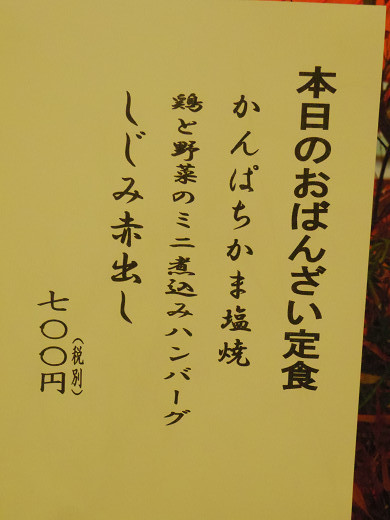 本日のおばんざい定食
かんぱちかま塩焼
鶏と野菜のミニ煮込みハンバーグ
しじみ赤出し
七〇〇円(税別)